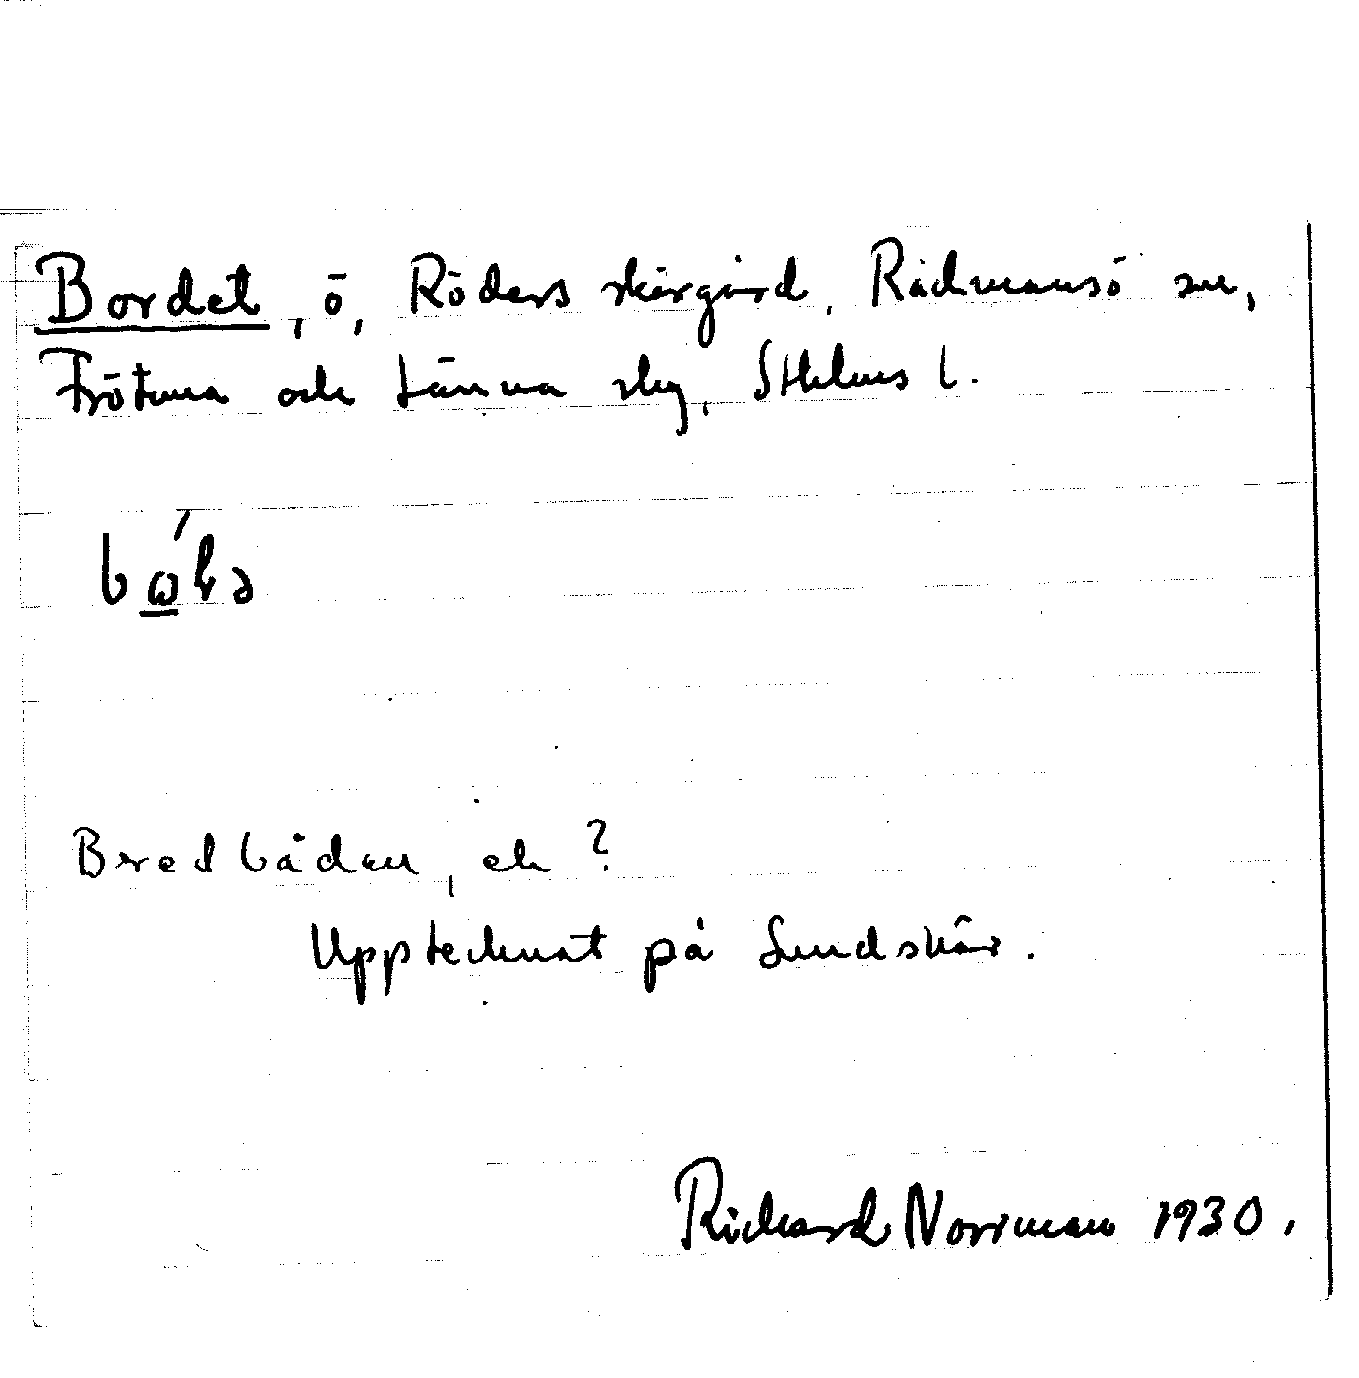 Bordet, ö, Röders skärgård, Rådmansö sn,
Frötuna och Länna skg, Sthlms l.
Bredbådan, ek?
Upptecknat på Sundskär.
Richard Norrman 1930.